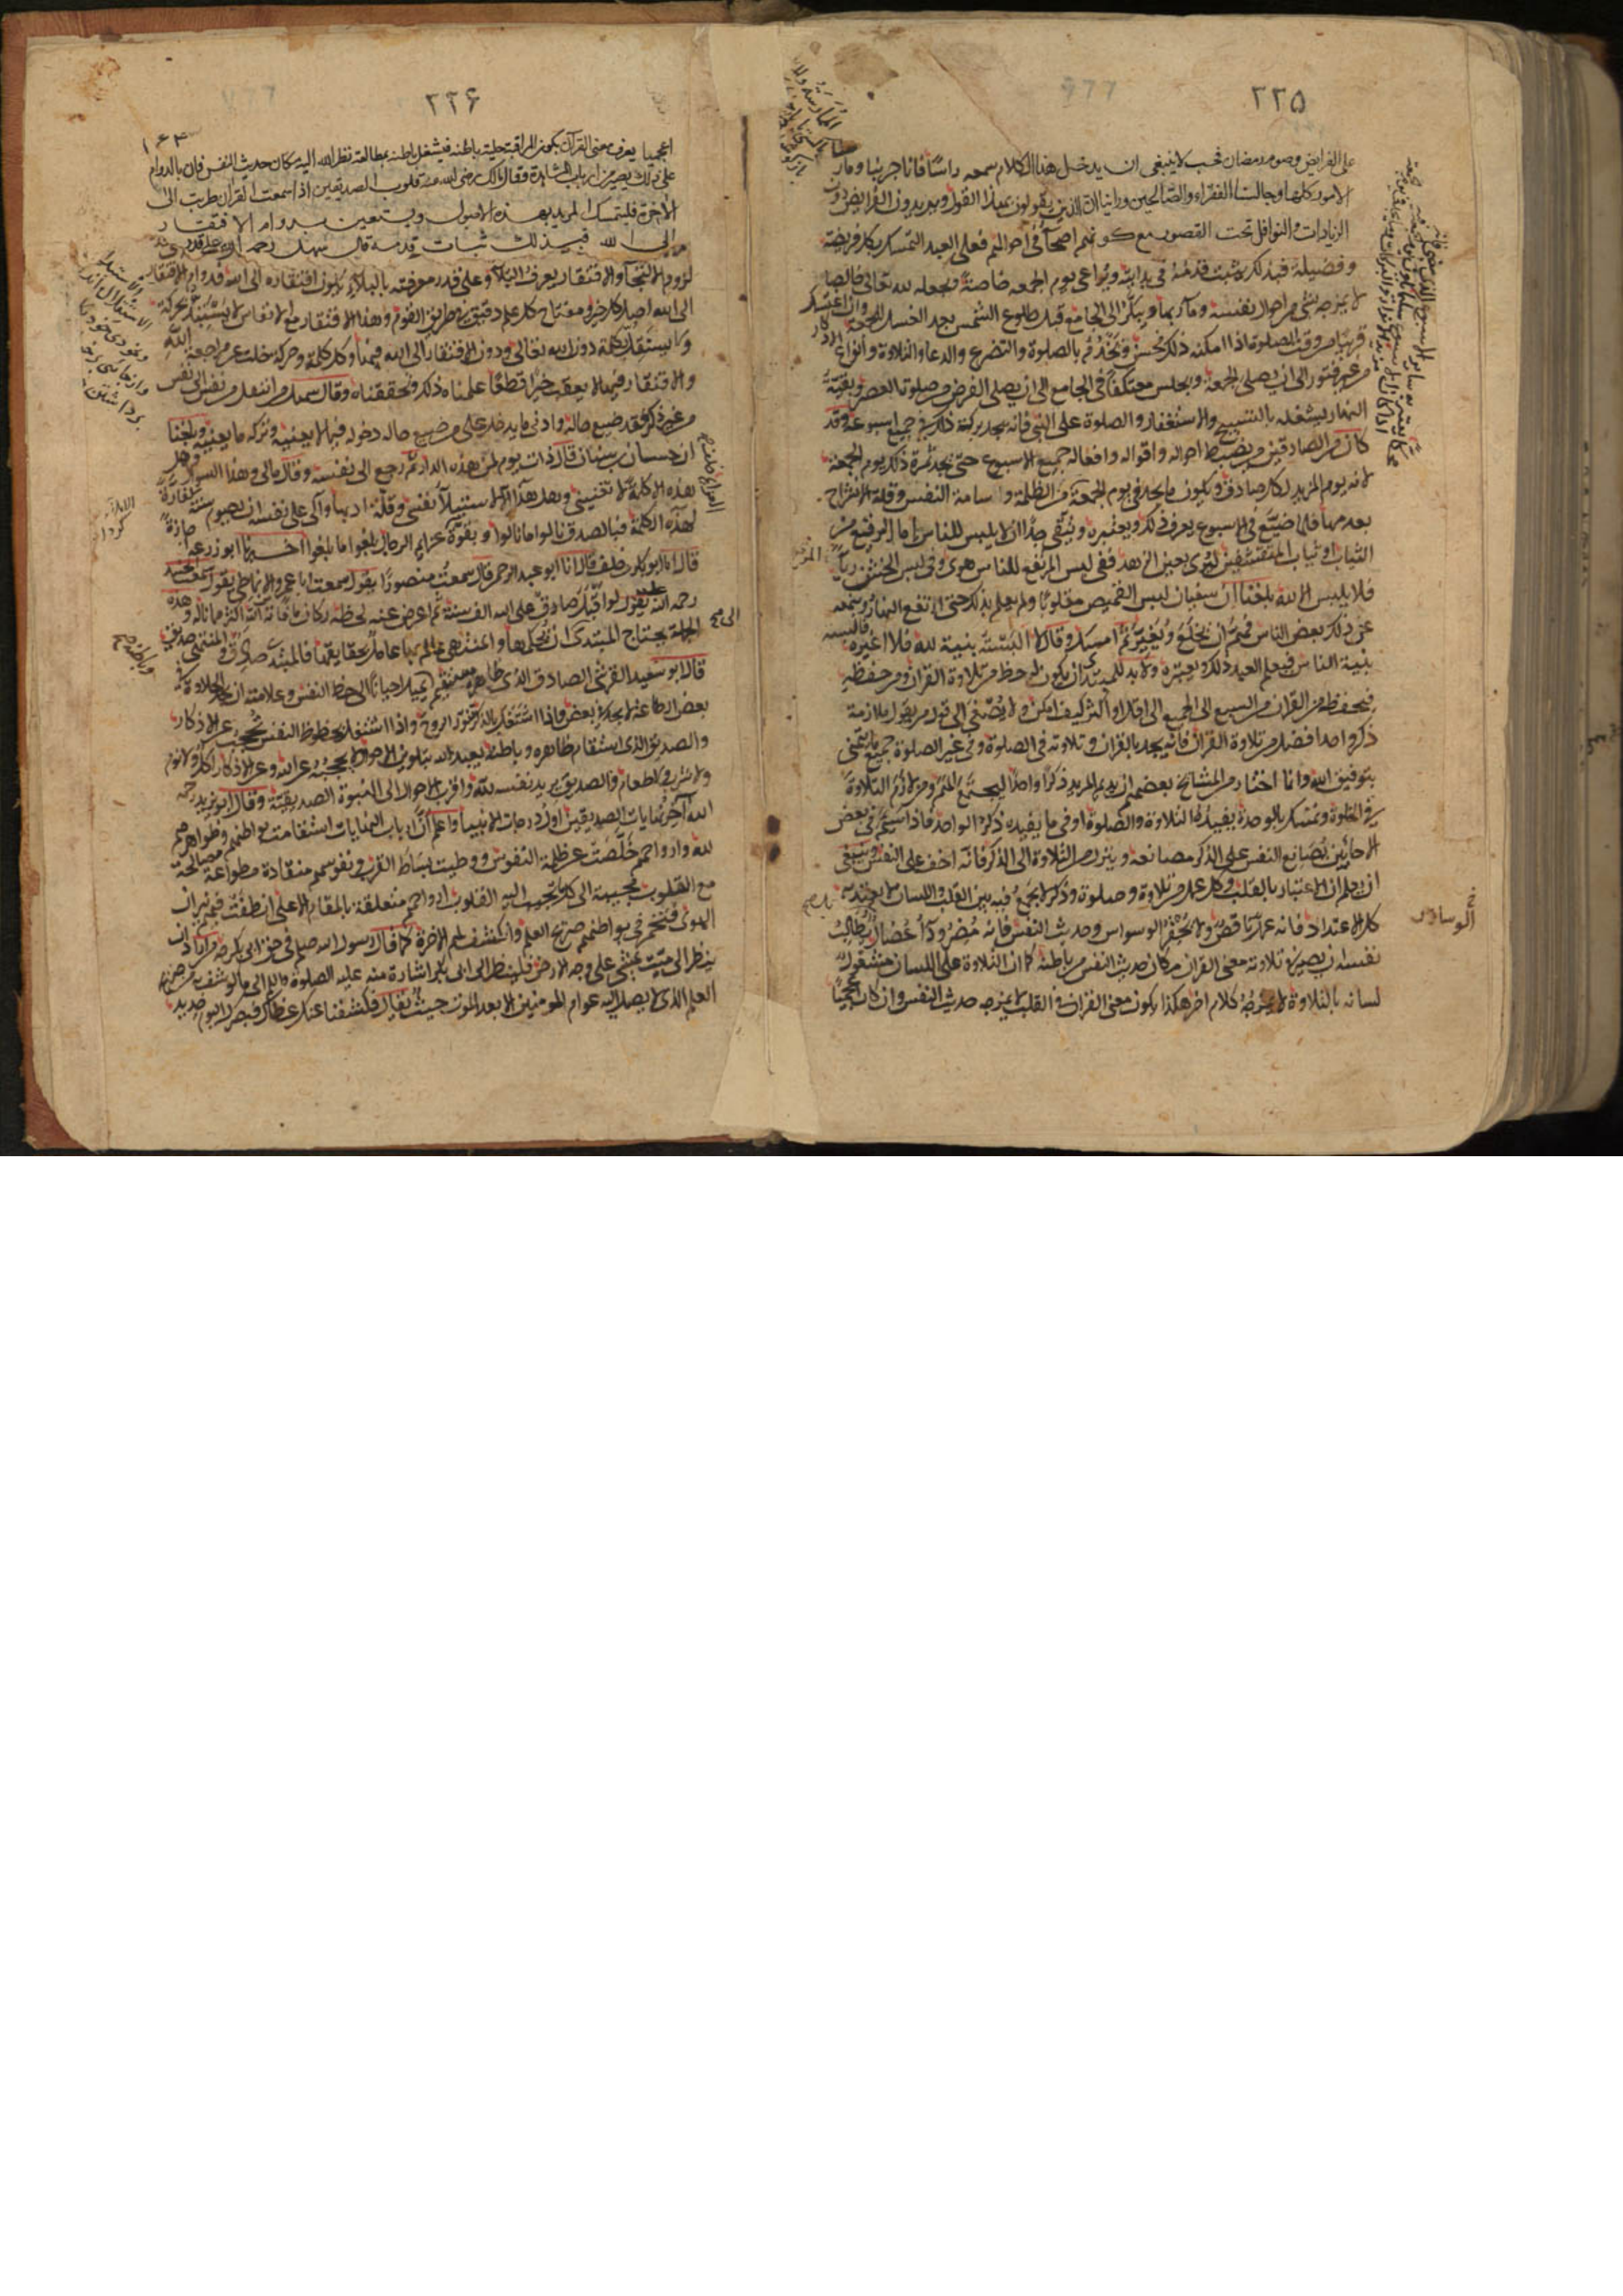 ٢٢٥
على الفرايض وصوم رمضان فحسب لا ينبغى ان يدخل هذا الكلام سمعه راسًا فانا جربنا ومار
الامور كلها وجالسنا الفقراء والصالحين وراينا ان الذين يقولون هذا القول ويريدون الفرايض دون
الزيادات والنوافل تحت القصور مع كونهم اصحاء فى احوالهم فعلى العبد التمسك بكل فريضة
وفضيلة فبذلك يثبت قدمه فى بدايته ويراعى يوم الجمعه خاصة ويجعله لله تعالى خالصا
لا يمزجه بشى من احوال نفسه ومآربها ويبكر الى الجامع قبل طلوع الشمس بعد الغسل للجمعة وان اغتسل
قريبًا من وقت الصلوة اذا امكنه ذلك فحسن ويخدم بالصلوة والتضرع والدعا والتلاوة وانواع الاذكار
من غير فتور الى ان يصلى الجمعة ويجلس معتكفا فى الجامع الى ان يصلى الفرض من صلوة العصر وبقية
النهار يشغله بالتسبيح والاستغفار والصلوة على النبى فانه يجد بركة ذلك فى جميع اسبوعه وقد
كان من الصادقين من يضبط احواله واقواله وافعاله جميع الاسبوع حتى يجد ثمرة ذلك يوم الجمعة
لانه يوم المزيد لكل صادق ويكون ما يجده يوم الجمعة من الظلمة وسامة النفس وقلة الانشراح
بعدها فلما ضيع فى الاسبوع يعرف ذلك ويعتبره ويتقى جدًا ان لا يلبس للناس اما المرتفع من
الثياب او ثياب المتقشفين ليرى بعين الزهد ففى لبس المرتفع للناس هوى وفى لبس الخشن رياء
فلا يلبس الا لله بلغنا ان سفيان لبس القميص مقلوبًا ولم يعلم بذلك حتى ارتفع النهار ونبهه
على ذلك بعض الناس فهم ان يخلع ويغير ثم امسك وقال لبسته بنية لله فلا اغيره فالبسه
بنية الناس فيعلم العبد ذلك ويعتبره ولا بد للمبتدى ان يكون له حظ من تلاوة القران ومن حفظه
فيحفظ من القران من السبع الى الجميع الى اقل او اكثر كيف امكن ولا يصغى الى قول من يقول ملازمة
ذكر واحد افضل من تلاوة القران فانه يجد بالقران وتلاوته فى الصلوة وفى غير الصلوة جميع ما يتمنى
بتوفيق الله وانما اختار من المشايخ بعضهم ان يديم المريد ذكرًا واحدًا ليجتمع الهم ومن لازم التلاوة
فى الخلوة وتمسك بالوحدة يفيده التلاوة والصلوة اوفى ما يفيده ذكر الواحد فاذا سئم فى بعض
الاحايين يصانع النفس على الذكر مصانعة وينزل من التلاوة الى الذكر فانه اخف على النفس وينبغى
ان يعلم ان الاعتبار بالقلب وكل عمل من تلاوة وصلوة وذكر لا يجمع فيه بين القلب واللسان لا يعتد به
كل الاعتداد فانه عمل ناقص ولا يحقر الوسواس وحديث النفس فانه مضر ودآء عضال فيطالب
نفسه ان يصير فى تلاوته معنى القران مكان حديث النفس من باطنه كما ان التلاوة على اللسان مشغول
لسانه بالتلاوة لا يمزجه كلام اخر هكذا يكون معنى القران فى القلب لا يمزجه حديث النفس وان كان اعجميًا
الوساوس
٢٢۶
١۶۴
اعجميا يعرف معنى القرآن يكون المراقبة حلية باطنه فيشغل باطنه بمطالعة نظر الله اليه مكان حديث النفس فان بالدوام
على ذلك يصير من ارباب المشاهدة وقال مالك رضى الله عنه قلوب الصديقين اذا سمعت القران طربت الى
الاخرة فليتمسك المريد بهذه الاصول ويستعين بدوام الافتقار
الى الله فبذلك ثبات قدمه قال سهل رحمه الله على قدر
لزوم الالتجآ والافتقار يعرف البلآ وعلى قدر معرفته بالبلاء يكون افتقاره الى الله فدوام الافتقار
الى الله اصل كل خير ومفتاح كل علم دقيق من طريق القوم وهذا الافتقار مع الانفاس لا يتشبث بحركة
ولا يستقل بكلمة دون الله تعالى ودون الافتقار الى الله فيها وكل كلمة وحركة خلت عن مراجعة الله
والافتقار فيها لا يعقب خيرا قطعًا علمنا ذلك وتحققناه وقال سهل من انتقل من نفس الى نفس
من غير ذكر فقد ضيع حاله وادنى ما يدخل على من ضيع حاله دخوله فيما لا يعنيه وتركه ما يعنيه وبلغنا
ان حسان بن سنان قال ذات يوم لمن هذه الدار ثم رجع الى نفسه وقال مالى وهذا السوال وهل
هذه الا كلمة لا تعنينى وهل هذا الا لاستيلآ نفسى وقلة ادبها وآلى على نفسه ان يصوم سنة كفارة
لهذه الكلمة فبالصدق نالوا ما نالوا وبقوة عزايم الرجال بلغوا ما بلغوا اخبرنا ابو زرعة اجازة
قال انا ابو بكر بن خلف قال انا ابو عبد الرحمن قال سمعت منصورًا يقول سمعت ابا عمرو الانماطى يقول سمعت الجنيد
رحمه الله يقول لو اقبل صادق على الله الف سنة ثم اعرض عنه لحظة لكان ما فاته اكثر مما ناله وهذه
الجملة يحتاج المبتدى ان يحكمها والمنتهى عالم بها عامل بحقايقها فالمبتدى صادق والمنتهى صديق
قال ابو سعيد القرشى الصادق الذى ظاهره مستقيم يميل احيانًا الى حظ النفس وعلامته ان يجد الحلاوة فى
بعض الطاعة ولا يجدها فى بعض واذا اشتغل بالذكر نور الروح واذا اشتغل بحظوظ النفس يحجب عن الاذكار
والصديق الذى استقام ظاهره وباطنه يعبد الله بتلوين الاحوال لا يحجبه عن الله وعن الاذكار اكل ولا نوم
ولا شرب ولا طعام والصديق يريد نفسه لله واقرب الاحوال الى النبوة الصديقية وقال ابو يزيد رحمه
الله آخر نهايات الصديقين اول درجات الانبيا واعلم ان ارباب النهايات استقامت بواطنهم وظواهرهم
لله وارواحهم خلصت عن ظلمة النفوس ووطيت بساط القرب ونفوسهم منقادة مطواعة صالحة
مع القلوب مجيبة الى كل ما تجيب اليه القلوب ارواحهم متعلقة بالمقام الاعلى انطفت فيهم نيران
الهوى وتخمر فى بواطنهم صريح العلم وانكشف لهم الاخرة كما قال رسول الله صلعم فى حق ابى بكر من اراد ان
ينظر الى ميت يمشى على وجه الارض فلينظر الى ابى بكر اشارة منه عليه الصلوة والسلام الى ما كوشف به من صريح
العلم الذى لا يصل اليه عوام المومنين الا بعد الموت حيث يقال فكشفنا عنك غطاءك فبصرك اليوم حديد